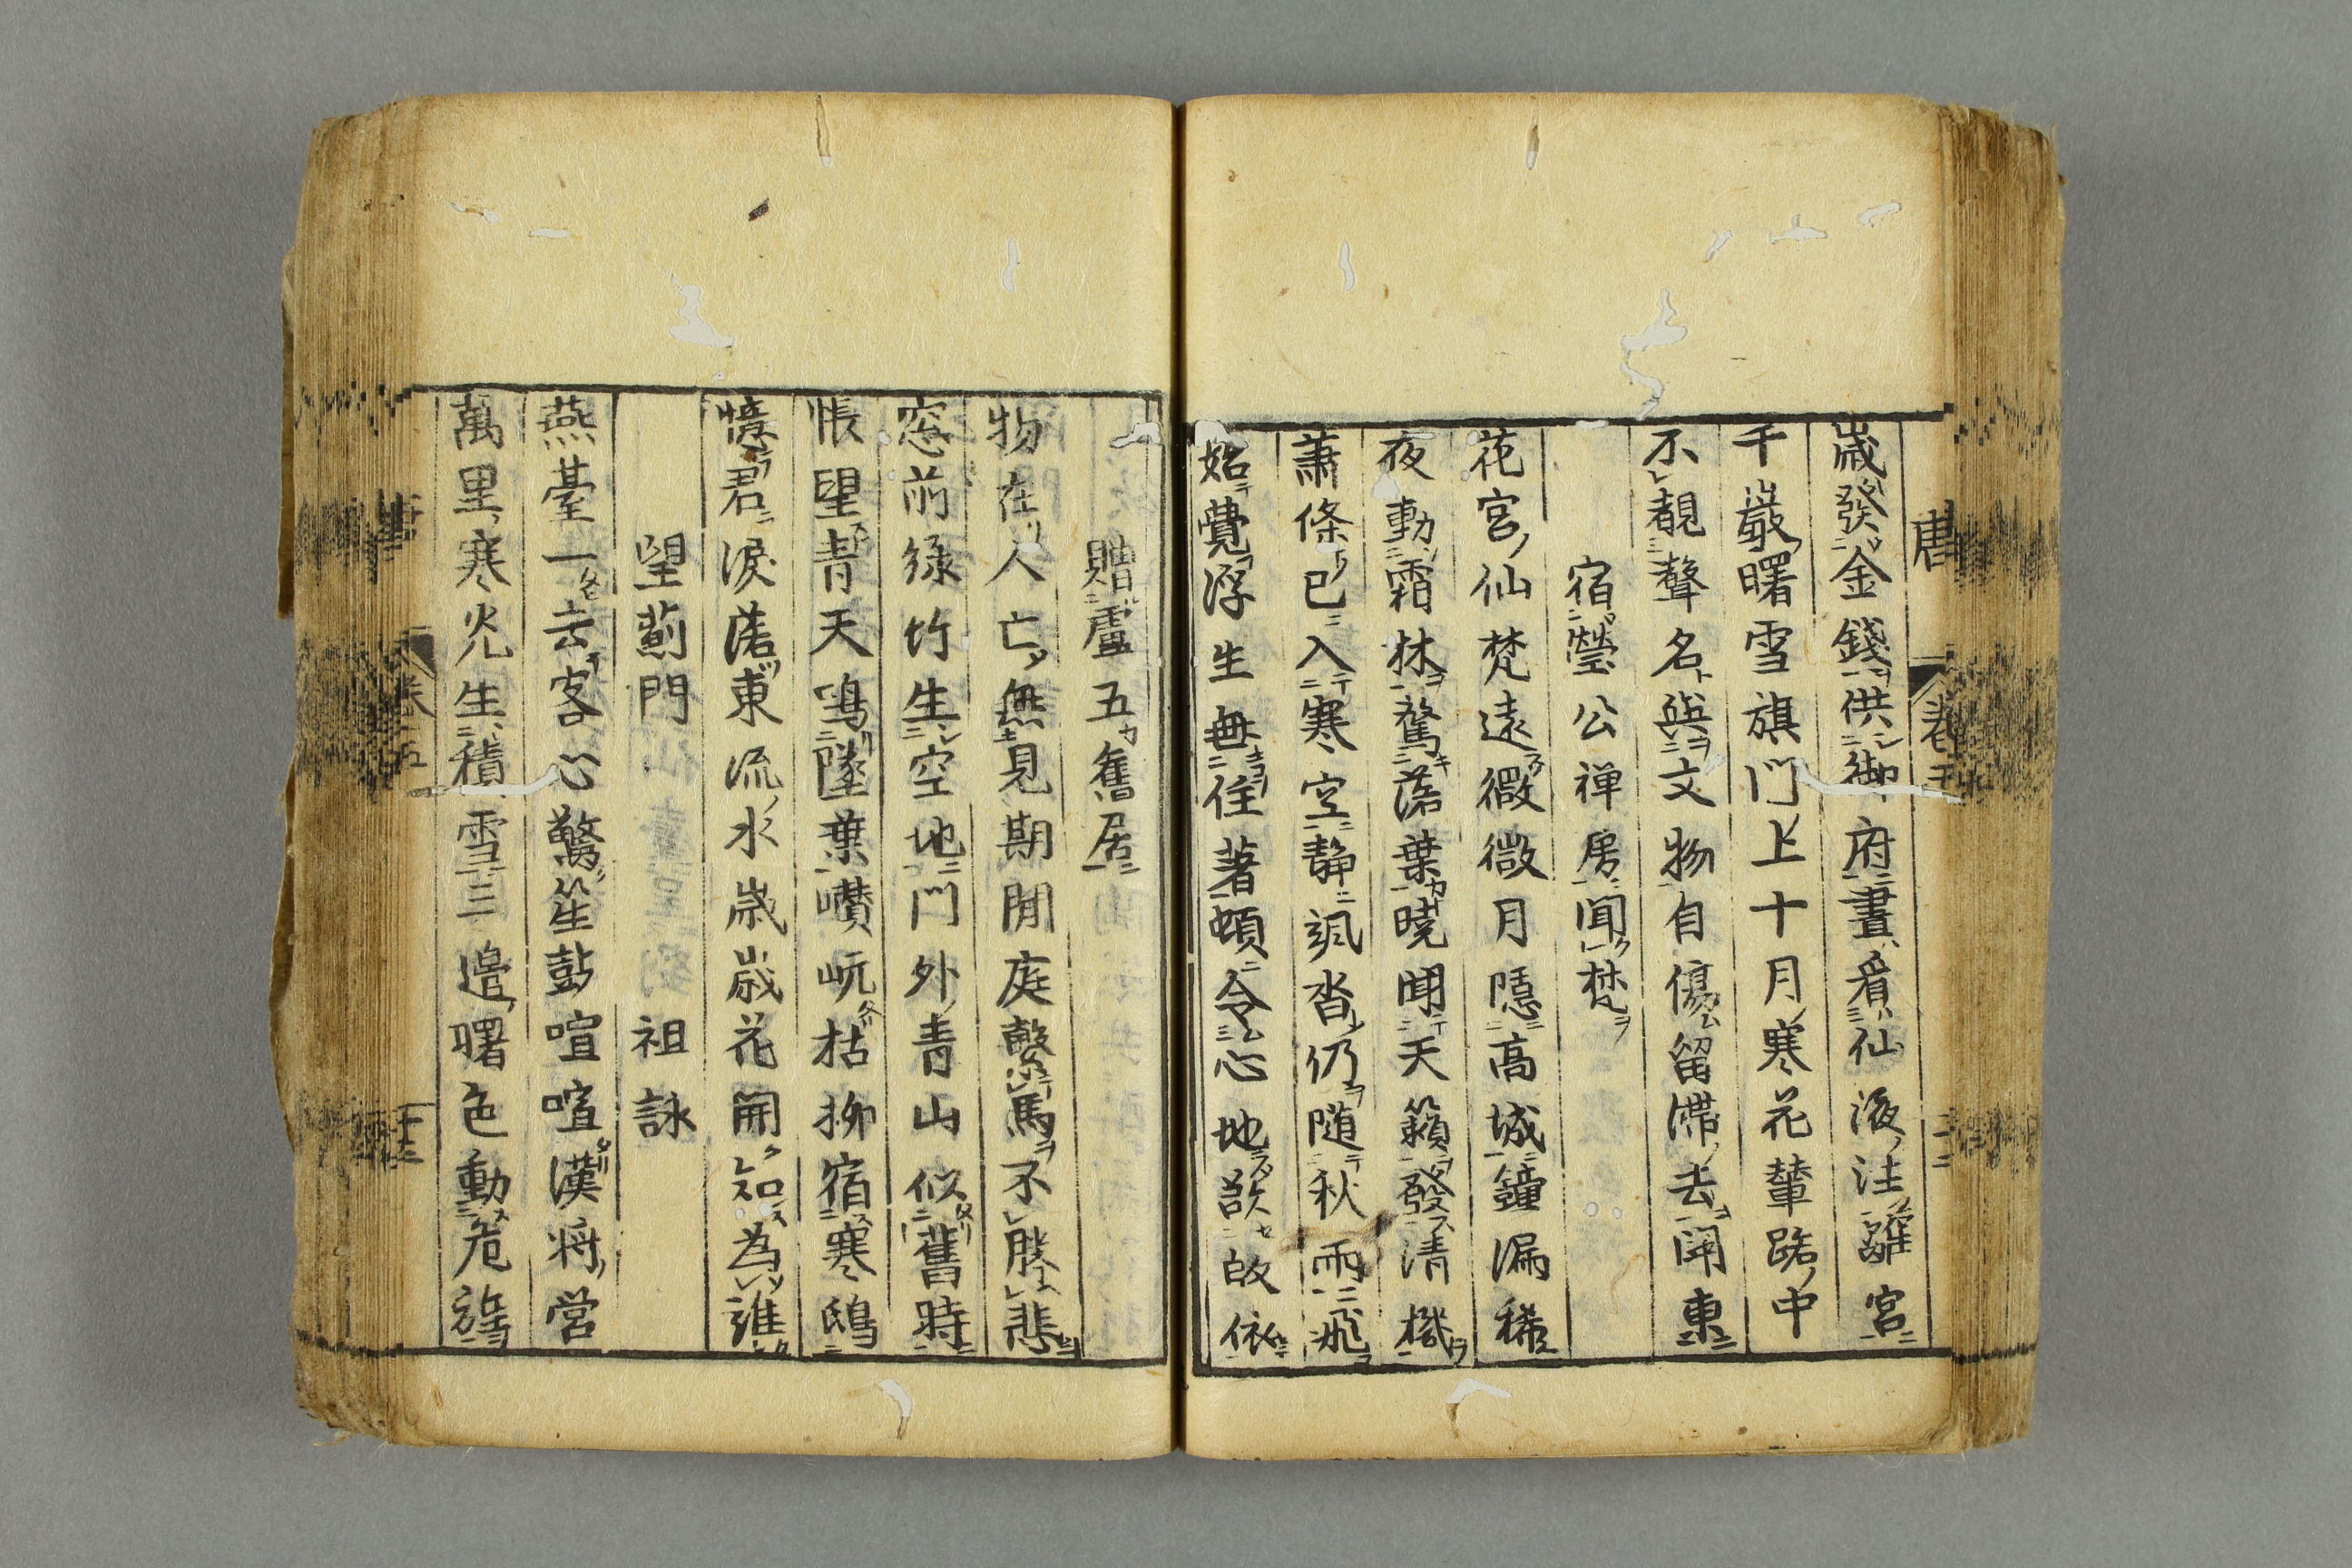 歳發金錢供御府晝看仙液注離宮
千巖曙雪旗門上十月寒花輦路中
不覩聲名與文物自傷留滯去関東
宿瑩公禅房聞梵
花宮仙梵遠微微月隱高城鐘漏稀
夜動霜林驚落葉曉聞天籟發清機
蕭條已入寒空静颯沓仍随秋雨飛
始覺浮生無住著頓令心地欲皈依
贈盧五舊居
物在人亡無見期閒庭繫馬不勝悲
窓前緑竹生空地門外青山似舊時
悵望青天鳴墜葉巑岏枯柳宿寒鴟
憶君涙落東流水歳歳花開知為誰
望薊門 祖詠
燕臺一去客心驚笙鼓喧喧漢将営
萬里寒光生積雪三邉曙色動危旌